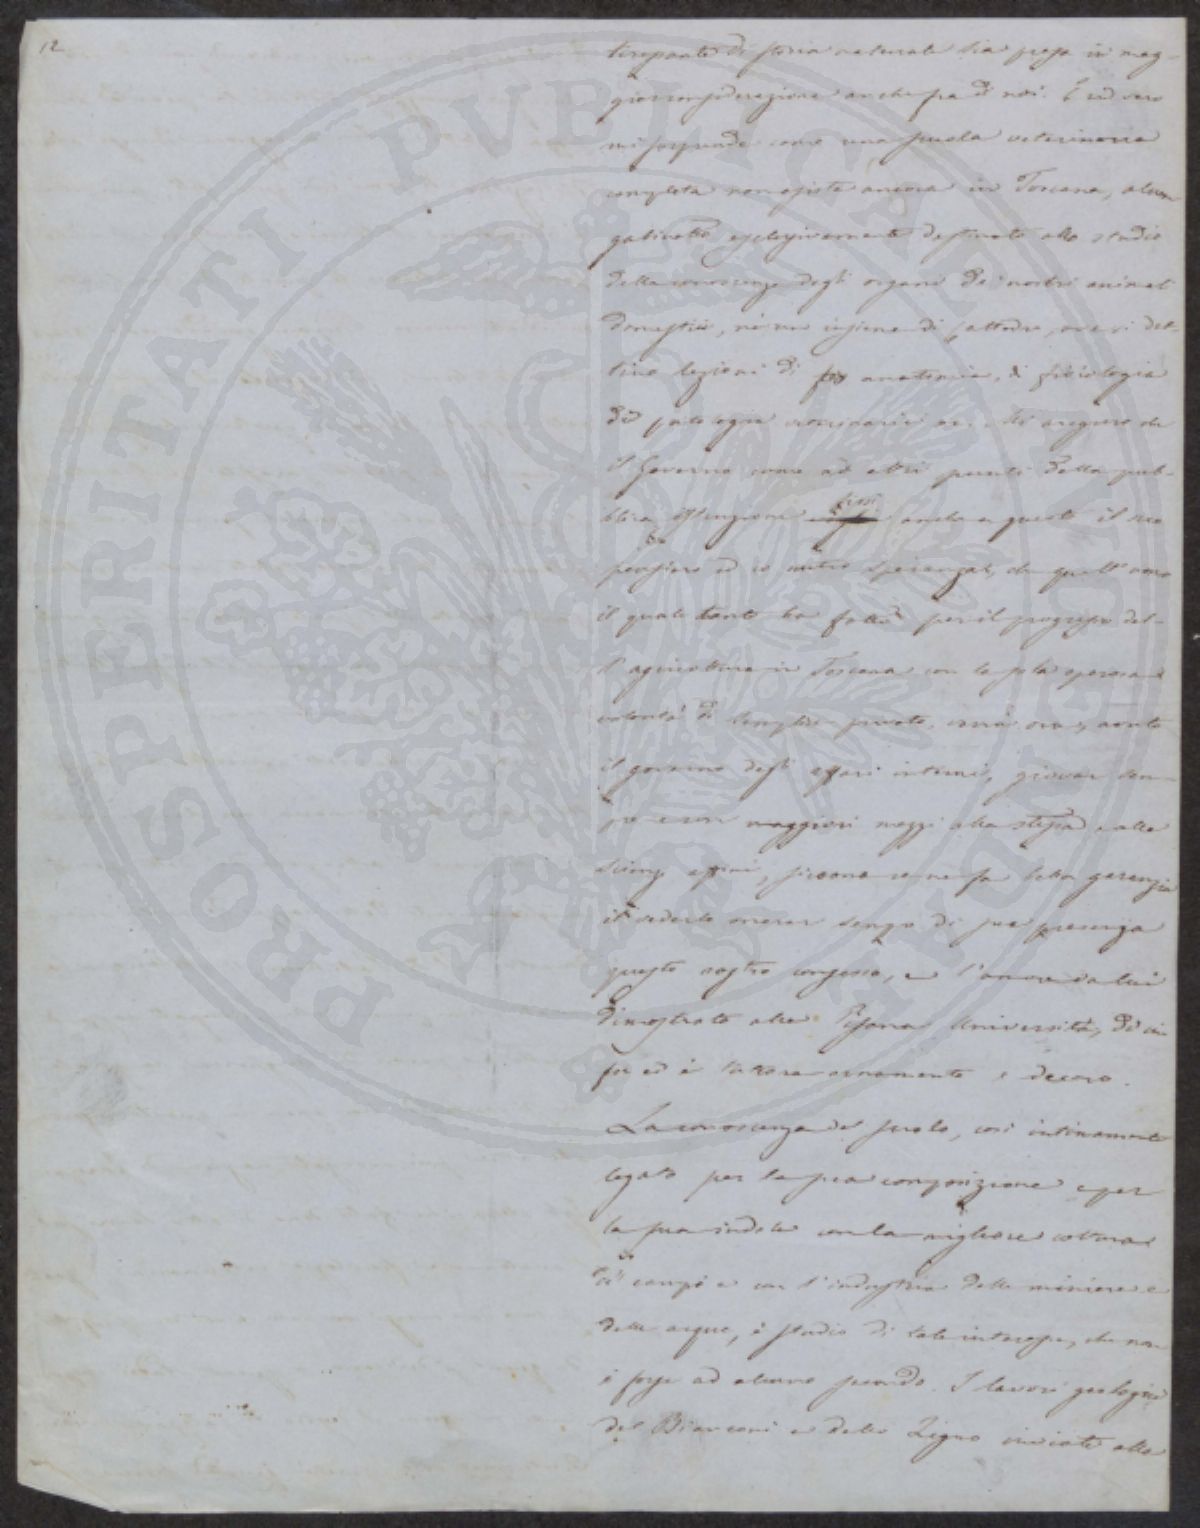 12
teressante di storia naturale sia presa in mag-
gior considerazione anche fra di noi. E nel vero
mi sorprende come una scuola veterinaria
completa non esista ancora in Toscana, alcun
gabinetto esclusivamente destinato allo studio
della conoscenza degli organi dei nostri animali
domestici, nè un insieme di cattedre, ove si det-
tino lezioni di anatomia, di fisiologia
di patologia veterinaria ec. Mi auguro che
il Governo come ad altri punti della pub-
blica istruzione fissi anche a questo il suo
pensiero ed io nutro speranza, che quell'uomo
il quale tanto ha fatto per il progresso del-
l'agricoltura in Toscana con la sola operosa
volontà di semplice privato, vorrà ora, avuto
il governo degli affari interni, giovar sem-
pre e con maggiori mezzi alla stessa e alle
scienze affini, siccome ce ne fa bella garanzia
il vederlo onorar di sua presenza
questo nostro congresso, e l'amore da lui
dimostrato alla Pisana Università, di cui
fu ed è tuttora ornamento e decoro.
La conoscenza del suolo, così intimamente
legato per la sua composizione e per
la sua indole con la migliore coltura
dei campi e con l'industria delle miniere e
delle acque, è studio di tale interesse, che non
è forse ad alcuno secondo. I lavori geologici
del Bianconi e dello Zigno inviati alla
PROSPERITATI PUBLICAE AUGENDAE